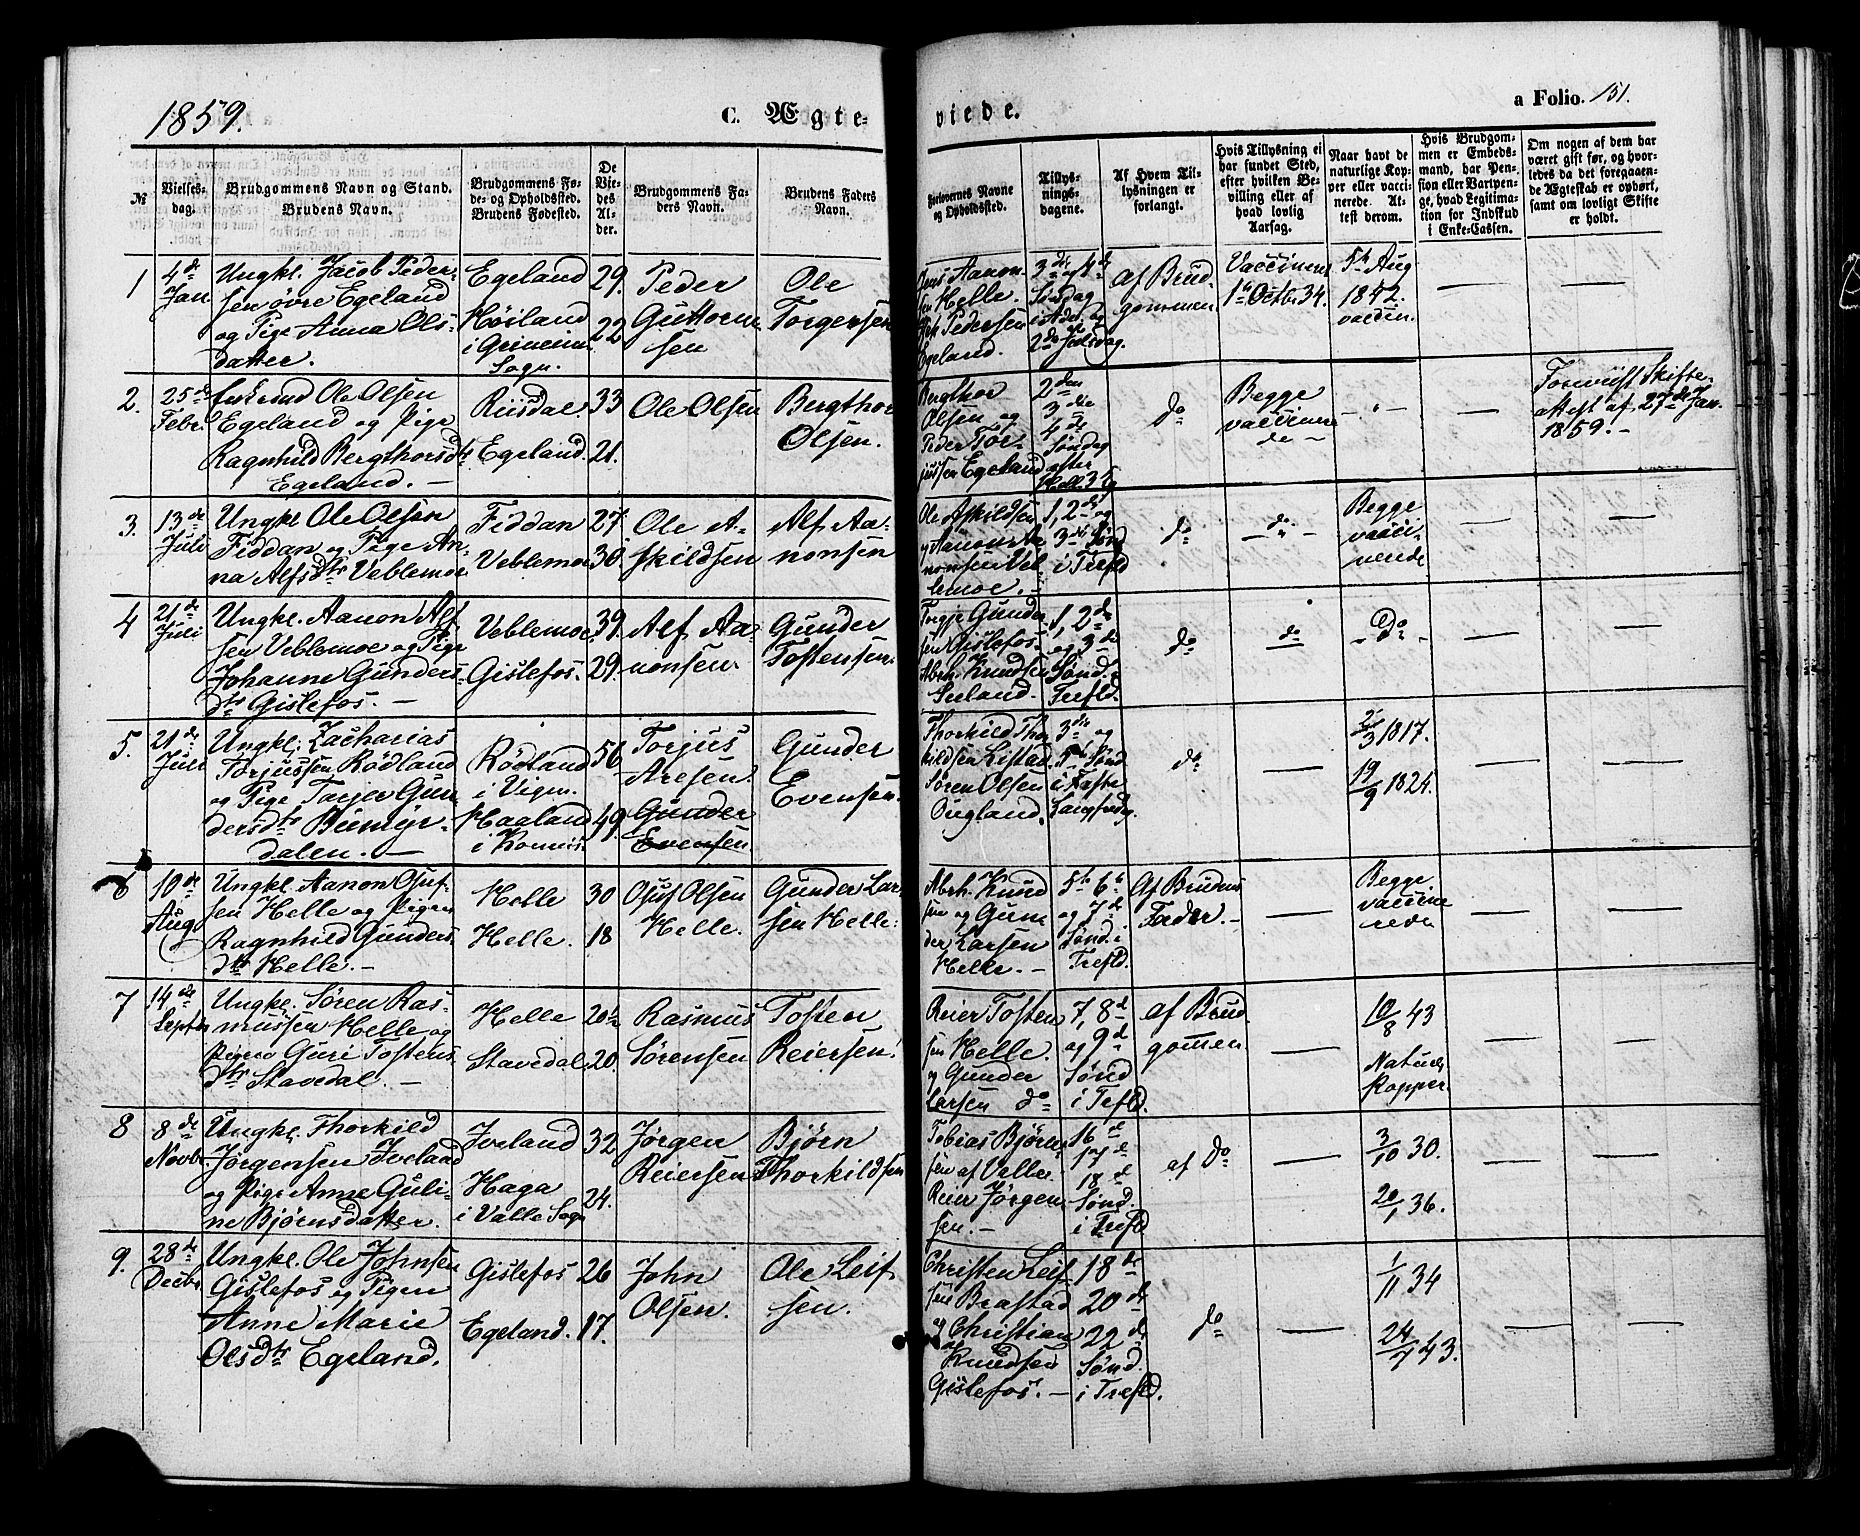 1859.
C. Ægte-
viede.
a Folio. 151.
№
Vielses-
dag.
Brudgommens Navn og Stand.
Brudens Navn.
Brudgommens Fø-
de- og Opholdssted.
Brudens Fødested.
De
Vie-
des
Al-
der.
Brudgommens Fa-
ders Navn.
Brudens Faders
Navn.
Forlovernes Navne
og Opholdssted.
Tillys-
nings-
dagene.
Af Hvem Til-
lysningen er
forlangt.
Hvis Tillysning ei
har fundet Sted,
efter hvilken Be-
villing eller af
hvad lovlig
Aarsag.
Naar havt de
naturlige Kop-
per eller vacci-
nerede. At-
test derom.
Hvis Brudgom-
men er Embeds-
mand, har Pen-
sion eller Vartpen-
ge, hvad Legitima-
tion for Indskud
i Enke-Cassen.
Om nogen af dem har
været gift før, og hvor-
ledes da det foregaaen-
de Ægteskab er ophørt,
samt om lovligt Skifte
er holdt.
1
4de
Jan
Ungkl. Jacob Peder-
sen øvre Egeland
og Pige Anna Ols-
datter.
Egeland
Høiland
i Grimeim
Sogn.
29.
22
Peder
Guttorm
sen
Ole
Torgersen
Jens Aanon-
sen Helle.
Pedersen
Egeland.
3de og 4de
Søndag
i Adv. og
2de Juledag.
af Brud
gommen
Vaccinen
1te Octbr 34.
5te Aug
1842.
vaccin.
2.
25de
Febr
Enkemd Ole Olsen
Egeland og Pige
Ragnhild Bergthorsdtr
Egeland. -
Riisdal
Egeland.
33
21.
Ole Olsen
Bergthor
Olsen.
Bergthor
Olsen og
Peder Tor-
jussen Egeland
2den
3die
4de
Søndag
efter
Hell. 3 Kg
do
Begge
vaccinere
de -
- " -
Foreviist Skifte-
attest af 27de Jan.
1859. -
3.
13de
Juli
Ungkl. Ole Olsen
Fiddan og Pige An-
na Alfsdtr Veblemoe
Fiddan
Veblemoe
27
30.
Ole A-
skildsen
Alf Aa-
nonsen
Ole Askildsen
og Aanon Aa
nonsen Veb
lemoe. -
1, 2de og
3die Sønd
i Trefld
do
- do -
Begge
vacci-
nerede
4
21de
Juli
Ungkl. Aanon Alf
sen Veblemoe og Pige
Johanne Gunders-
dtr Gislefos. -
Veblemoe
Gislefos.
39.
29.
Alf Aa
nonsen.
Gunder
Tostensen.
Torje Gunder
sen Gislefos.
Abrh. Knudsen
Seeland.
1, 2de
og 3de
Sønd.
Trefld.
do
do
- Do -
5.
21de
Juli
Ungkl. Zacharias
Torjussen Rødland
og Pige Torjer Gun
dersdtr Bumyr-
dalen. -
Rødland
i Vigm.
Haaland
i Konnis.
56
49.
Torjus
Aresen.
Gunder
Evensen
Gunder
Evensen.
Thorkild Thor
kildsen Listad
Søren Olsen
Ougland.
3die og
5te Sønd
i Faste
Langfredg.
do
25/3 1817.
19/9 1824.
6
10de
Aug
Ungkl. Aanon Osuf-
sen Helle og Pigen
Ragnhild Gunders
dtr Helle. -
Helle
Helle.
30
18
Osuf Olsen
Helle.
Gunder Lar
sen Helle.
Abrh. Knud
sen og Gun
der Larsen
Helle. -
5te 6te
og 7de
Sønd. i
Trefld.
Af Brudens
Fader. -
Begge
vaccine
rede
7
14de
Septbr
Ungkl. Søren Ras-
mussen Helle og
Pigen Guri Tostens-
dtr Stavedal. -
Helle
Stavedal
20½
20.
Rasmus
Sørensen
Tosten
Reiersen.
Reier Tosten
sen Helle.
og Gunder
Larsen do
7, 8de
og 9de
Sønd
i Trefld.
af Brud
gomen
10/8 43
Naturl.
Kopper
8
8de
Novbr.
Ungkl. Thorkild
Jørgensen Iveland
og Pige Anne Guli-
ne Bjørnsdatter.
Iveland
Haga
i Valle Sogn
32
24.
Jørgen
Reiersen
Bjørn
Thorkildsen
Tobias Bjørn
sen af Valle.
Reier Jørgen
sen. -
16de
17de
18de
Sønd.
i Trefld
af Do
3/10 30.
20/1 36.
9.
28de
Decbr
Ungkl. Ole Johnsen
Gislefos og Pigen
Anne Marie
Olsdtr Egeland.
Gislefos
Egeland.
26
17.
John
Olsen.
Ole Leif
sen.
Christen Leif
sen Brastad
og Christian
Knudsen
Gislefos. -
18de
20de
22de
Sønd.
i Trefld.
do
1/11 34
24/7 43.